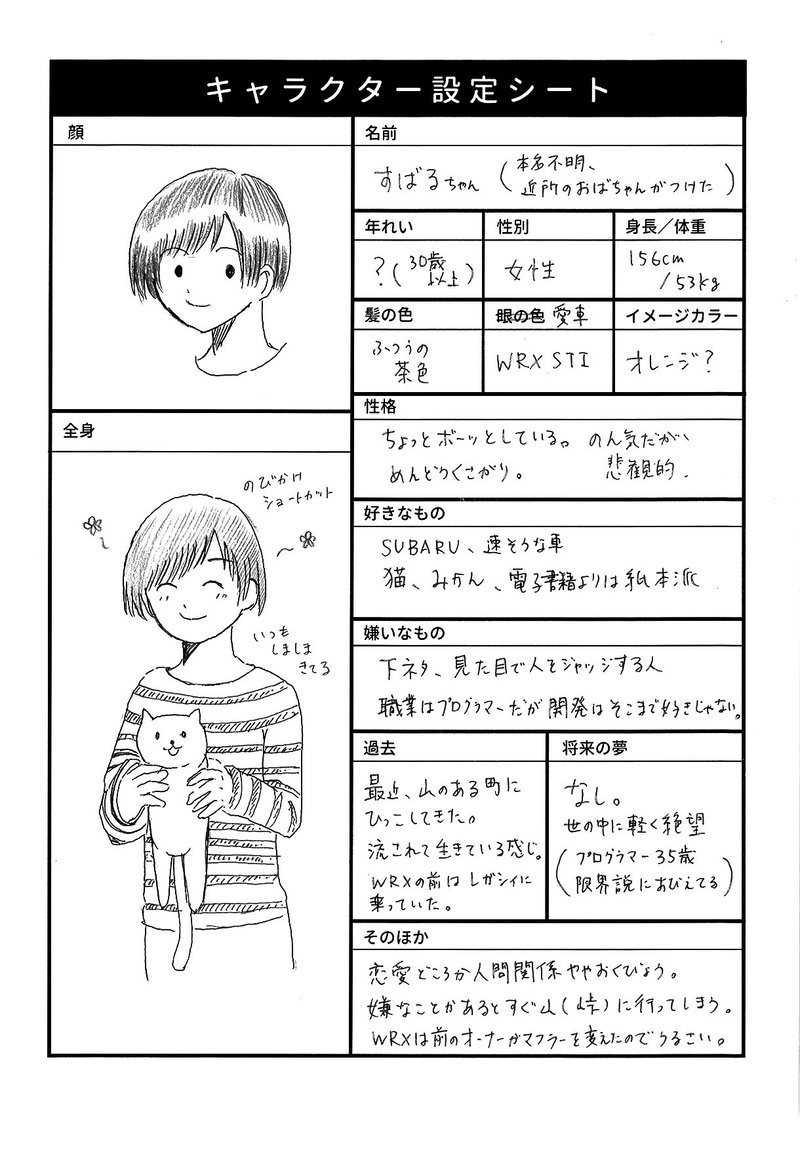 キャラクター設定シート
顔
名前
すばるちゃん（本名不明、
近所のおばちゃんがつけた）
年れい
性別
身長／体重
？（30歳
以上）
女性
156cm
/53kg
髪の色
眼の色 愛車
イメージカラー
ふつうの
茶色
WRX STI
オレンジ？
性格
ちょっとボーッとしている。のん気だが、
めんどうくさがり。 悲観的.
好きなもの
SUBARU、速そうな車
猫、みかん、電子書籍よりは紙本派
嫌いなもの
下ネタ、見た目で人をジャッジする人
職業はプログラマーだが開発はそこまで好きじゃない。
過去
最近、山のある町に
ひっこしてきた。
流されて生きている感じ。
WRXの前はレガシィに
乗っていた。
将来の夢
なし。
世の中に軽く絶望
（プログラマー35歳
限界説におびえてる）
そのほか
恋愛どころか人間関係ややおくびょう。
嫌なことがあるとすぐ山（峠）に行ってしまう。
WRXは前のオーナーがマフラーを変えたのでうるさい。
全身
のびかけ
ショートカット
いつも
しましま
きてる